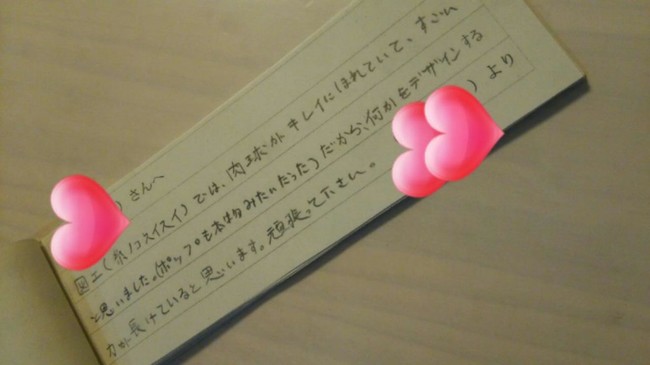 )さんへ
図工(糸ノコスイスイ)では、肉球がキレイにほれていて、すごい
と思いました。(ポップも本物みたいだった)だから、何かをデザインする
力が長けていると思います。頑張って下さい。
)より